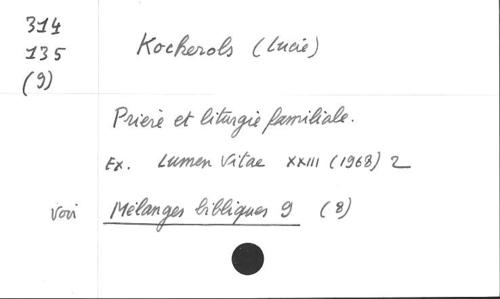 314
135
(9)
Kockerols (Lucie)
Prière et liturgie familiale.
Ex. Lumen Vitae XXIII (1968) 2
voir Mélanges bibliques 9 (8)